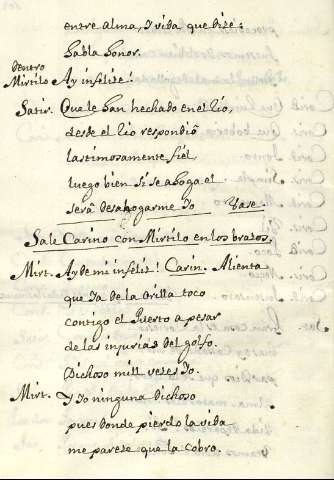 entre alma, y vida que dize:
habla honor.
dentro
Mirtilo Ay infelize!
Satir. Que le han hechado en el rio,
desde el rio respondiò
lastimosamente fiel,
luego bien sì se ahoga el
serâ desahogarme yo Vase.
Sale Carino con Mirtilo en los brazos.
Mirt. Ay de mi infeliz! Carin. Alienta
que ya de la orilla toco
contigo el Puerto a pesar
de las injurias del golfo.
Dichoso mill veses yo.
Mirt. Y yo ninguna dichoso
pues donde pierdo la vida
me parese que la cobro.